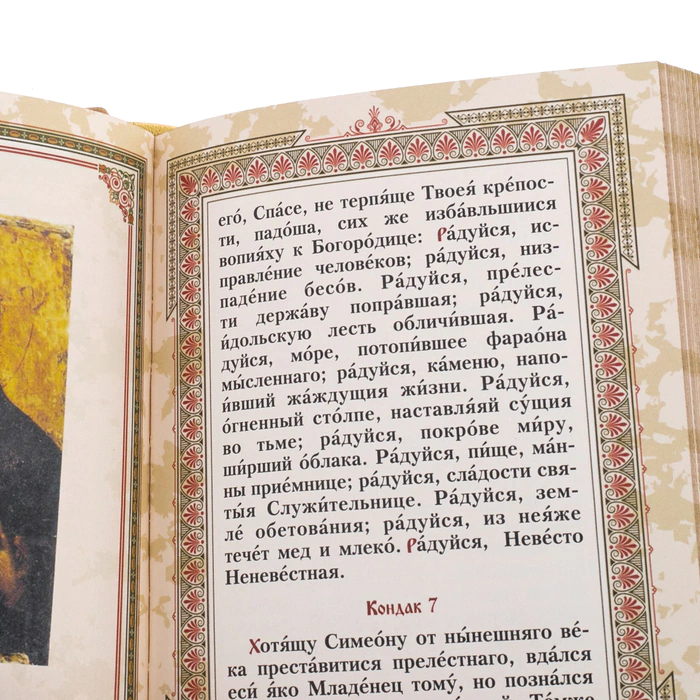 его́, Спа́се, не терпя́ще Твоея́ кре́пос-
ти, падо́ша, сих же изба́вльшиися
вопия́ху к Богоро́дице: Ра́дуйся, ис-
правле́ние челове́ков; ра́дуйся, низ-
паде́ние бесо́в. Ра́дуйся, пре́лес-
ти держа́ву поправ́шая; ра́дуйся,
и́дольскую лесть обличи́вшая. Ра́-
дуйся, мо́ре, потопи́вшее фарао́на
мы́сленнаго; ра́дуйся, ка́меню, напо-
и́вший жа́ждущия жи́зни. Ра́дуйся,
о́гненный сто́лпе, наставля́яй су́щия
во тьме; ра́дуйся, покро́ве ми́ру,
ши́рший о́блака. Ра́дуйся, пи́ще, ма́н-
ны прие́мнице; ра́дуйся, сла́дости свя-
ты́я Служи́тельнице. Ра́дуйся, зем-
ле́ обетова́ния; ра́дуйся, из нея́же
тече́т мед и млеко́. Ра́дуйся, Неве́сто
Неневе́стная.
Кондак 7
Хотя́щу Симео́ну от ны́нешняго ве́-
ка преста́витися преле́стнаго, вда́лся
еси́ я́ко Младе́нец тому́, но позна́лся